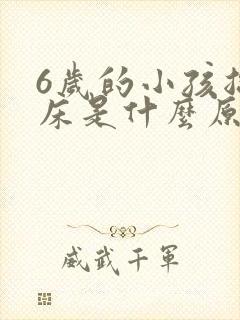 6歲的小孩
床是什麼原
威武千軍